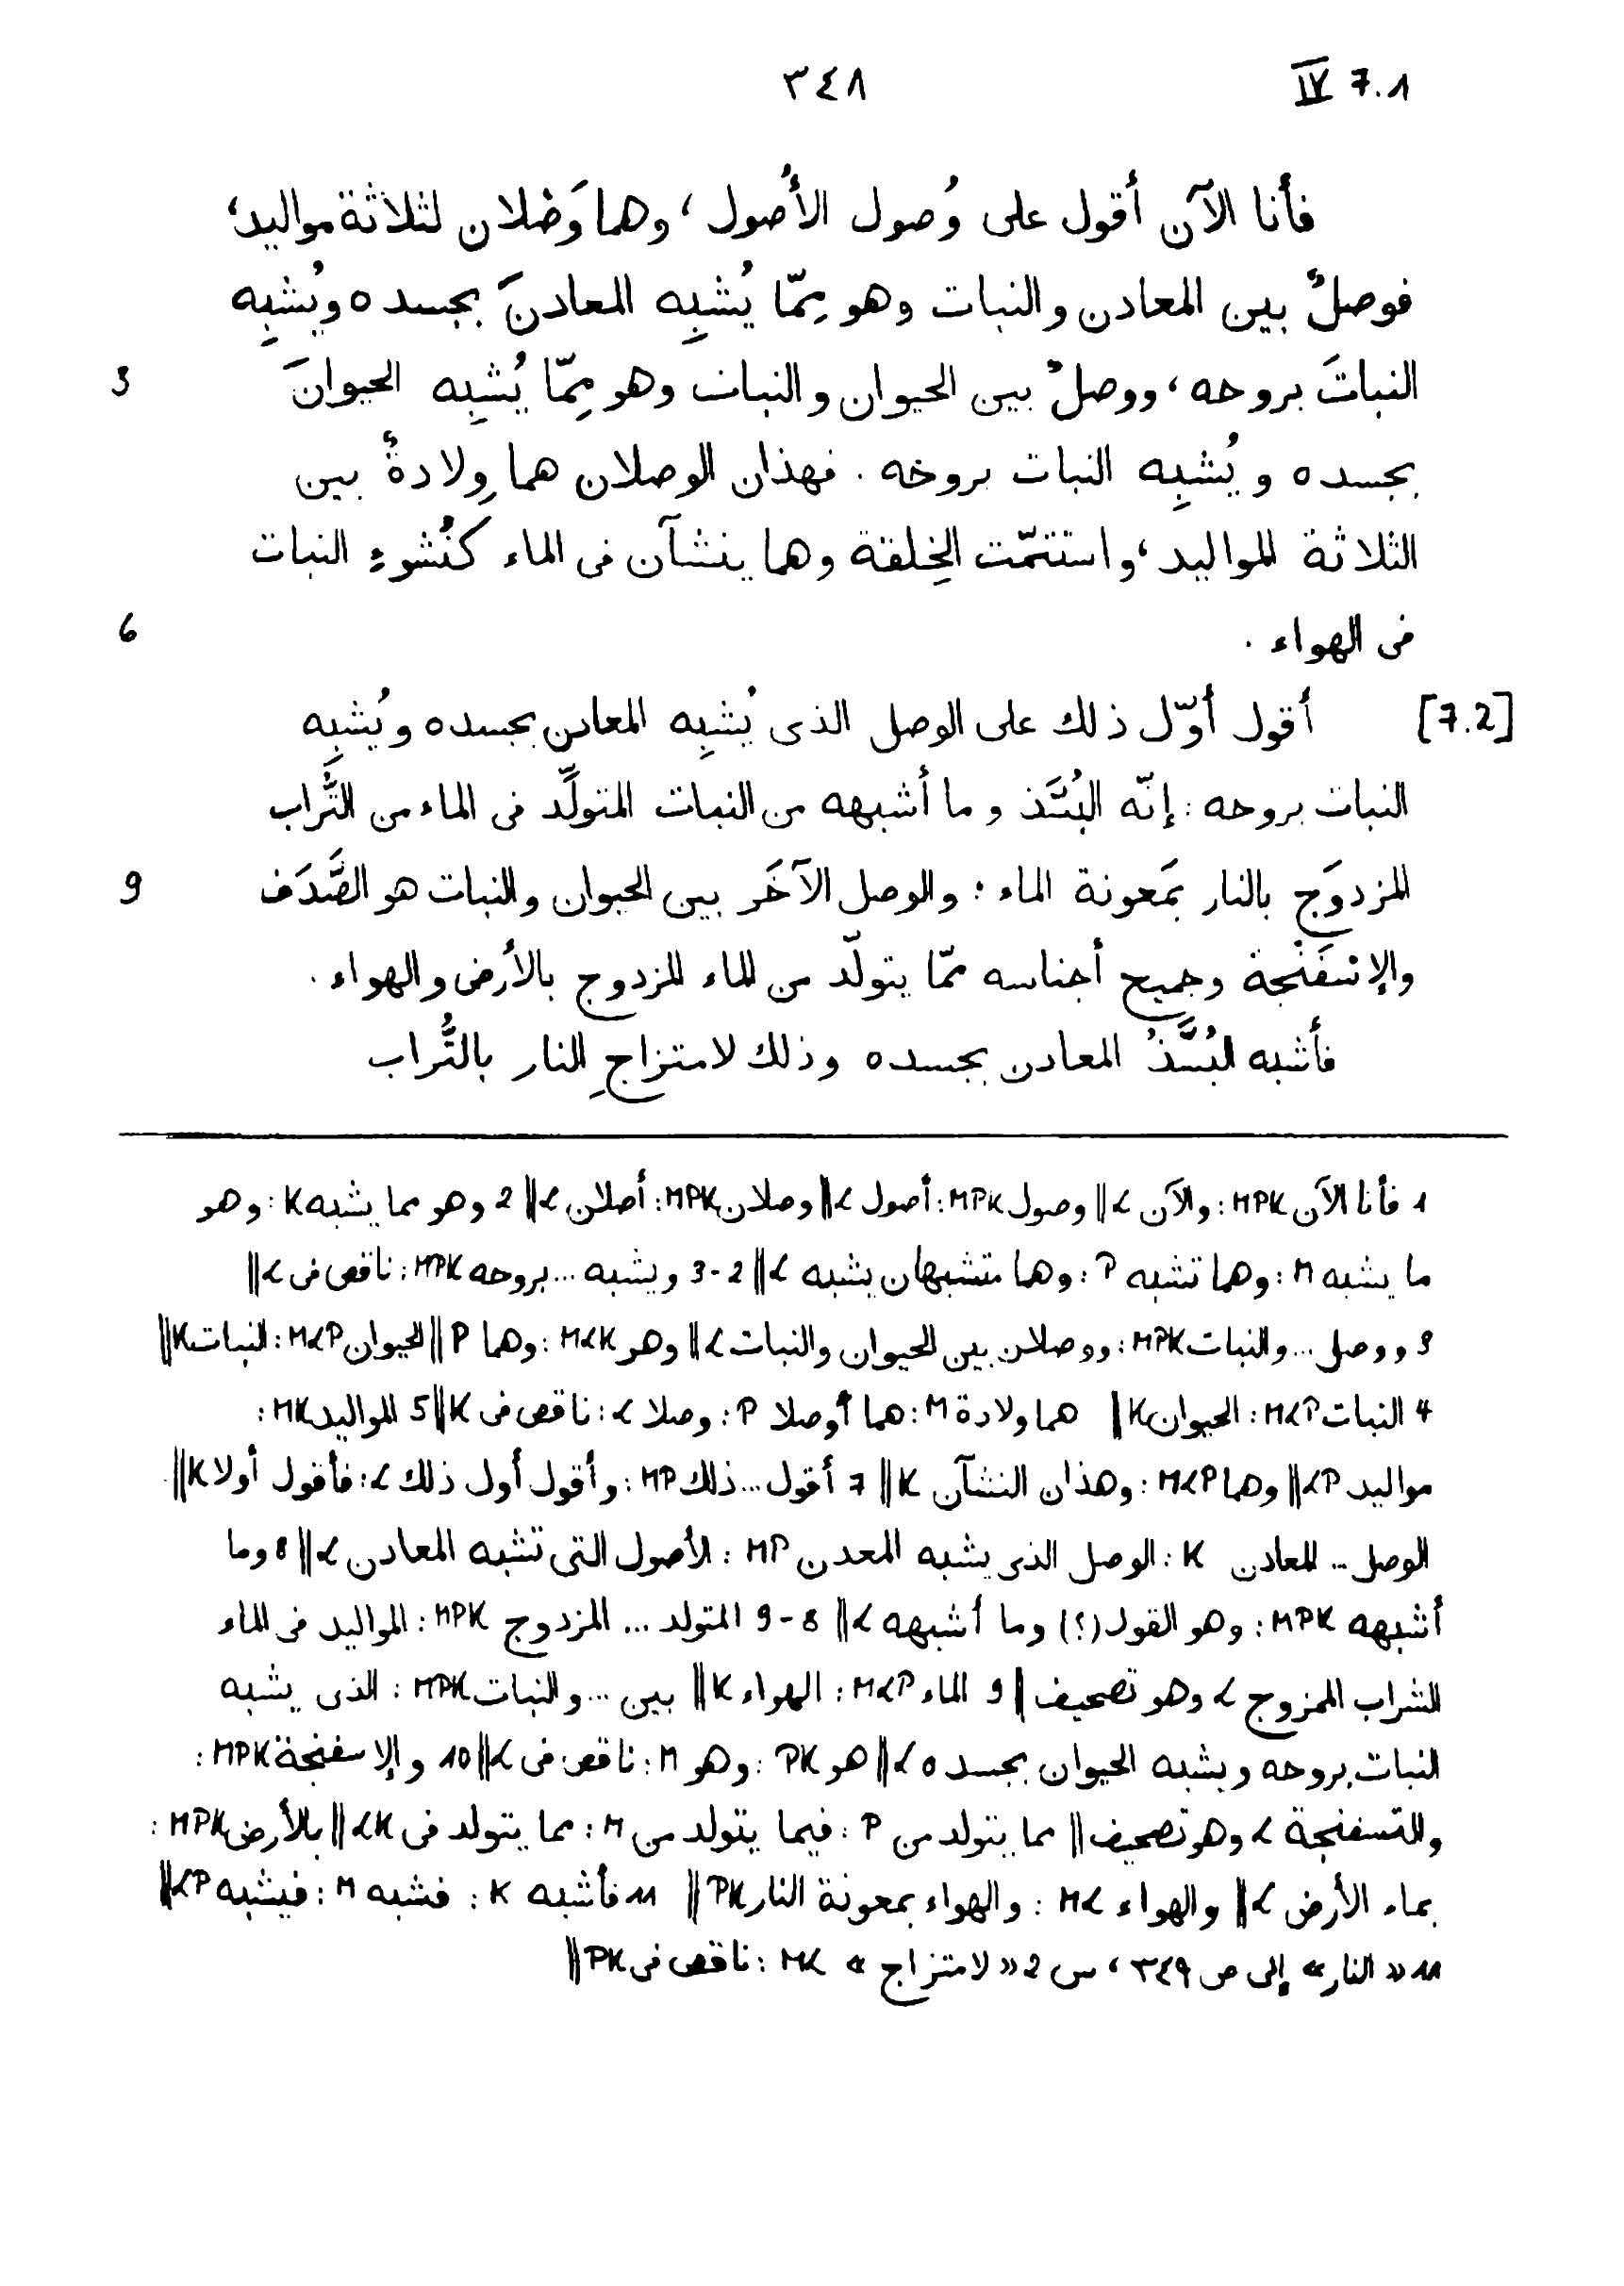 IV 7.1 ٣٤٨
فأنا الآن أقول على وُصول الأُصول، وهما وَصْلان لثلاثة مواليد،
فوصلٌ بين المعادن والنبات وهو مِمّا يُشبِه المعادنَ بجسده ويُشبِه
3 النباتَ بروحه، ووصلٌ بين الحيوان والنبات وهو مِمّا يُشبِه الحيوانَ
بجسده ويُشبِه النبات بروحه. فهذان الوصلان هما وِلادةٌ بين
الثلاثة المواليد، واستتمّت الخِلقة وهما ينشآن فى الماء كنُشوءِ النبات
6 فى الهواء.
[7.2] أقول أوّل ذلك على الوصل الذى يُشبِه المعادن بجسده ويُشبِه
النبات بروحه: إنّه البُسَّذ وما أشبهه من النبات المتولِّد فى الماء من التُّراب
9 المزدوَج بالنار بمَعونة الماء؛ والوصل الآخَر بين الحيوان والنبات هو الصَّدَف
والإسفَنْجة وجميع أجناسه ممّا يتولّد من الماء المزدوج بالأرض والهواء.
فأشبه البُسَّذُ المعادن بجسده وذلك لامتزاجِ النار بالتُّراب
1 فأنا الآن MPK: والآن L || وصول MPK: أصول L || وصلان MPK: أصلان L || 2 وهو مما يشبه K: وهو
ما يشبه M: وهما تشبه P: وهما متشبهان يشبه L || 2-3 ويشبه ... بروحه MPK: ناقص فى L ||
3 ووصل ... والنبات MPK: ووصلان بين الحيوان والنبات L || وهو MLK: وهما P || الحيوان MLP: النبات K ||
4 النبات MLP: الحيوان K || هما ولادة M: هما أوصلا P: وصلا L: ناقص فى K || 5 المواليد MK:
مواليد LP || وهما MLP: وهذان النشآن K || 7 أقول ... ذلك MP: وأقول أول ذلك L: فأقول أولا K ||
الوصل ... المعادن K: الوصل الذى يشبه المعدن MP: الأصول التى تشبه المعادن L || 8 وما
أشبهه MPK: وهو القول (؟) وما أشبهه L || 8-9 المتولد ... المزدوج MPK: المواليد فى الماء
الشراب الممزوج L وهو تصحيف || 9 الماء MLP: الهواء K || بين ... والنبات MPK: الذى يشبه
النبات بروحه ويشبه الحيوان بجسده L || هو PK: وهو M: ناقص فى L || 10 والإسفنجة MPK:
والتسفنجة L وهو تصحيف || مما يتولد من P: فيما يتولد من M: مما يتولد فى LK || بالأرض MPK:
بماء الأرض L || والهواء ML: والهواء بمعونة النار PK || 11 فأشبه K: فشبه M: فيشبه LP ||
11 «النار» إلى ص ٣٤٩، س 2 «لامتزاج» ML: ناقص فى PK ||